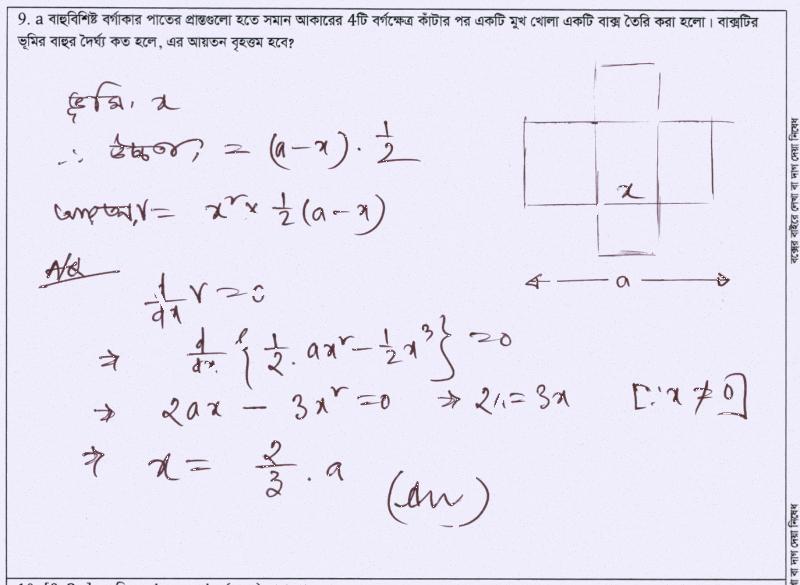 9. a বাহুবিশিষ্ট বর্গাকার পাতের প্রান্তগুলো হতে সমান আকারের 4টি বর্গক্ষেত্র কাঁটার পর একটি মুখ খোলা একটি বাক্স তৈরি করা হলো। বাক্সটির
ভূমির বাহুর দৈর্ঘ্য কত হলে, এর আয়তন বৃহত্তম হবে?
ভূমি, x
∴ উচ্চতা, = (a-x) · 1/2
আয়তন, V = x² × 1/2 (a-x)
x
a
A/Q
d/dx V = 0
⇒ d/dx { 1/2 · ax² - 1/2 x³ } = 0
⇒ 2ax - 3x² = 0 ⇒ 2a = 3x [∵ x ≠ 0]
⇒ x = 2/3 · a (Ans)
বক্সের বাইরে লেখা বা দাগ দেয়া নিষেধ
বা দাগ দেয়া নিষেধ